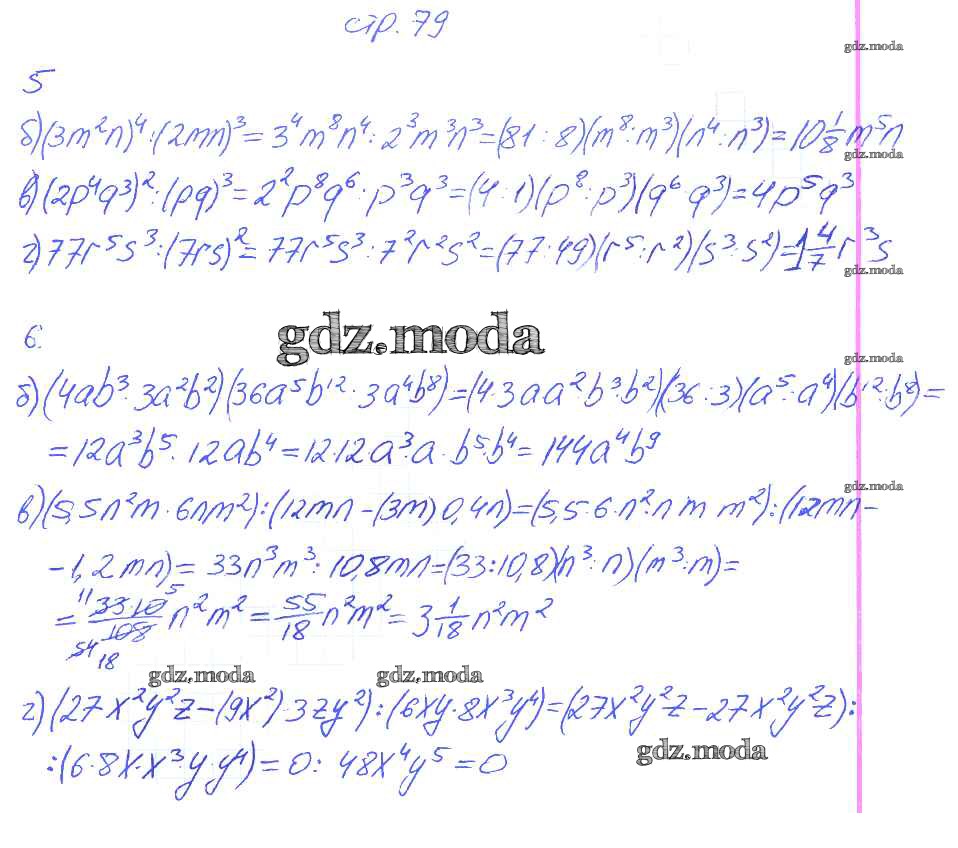 стр. 79
gdz.moda
5
б) (3m²n)⁴ : (2mn)³ = 3⁴m⁸n⁴ : 2³m³n³ = (81 : 8)(m⁸ : m³)(n⁴ : n³) = 10 1/8 m⁵n
gdz.moda
в) (2p⁴q³)² : (pq)³ = 2²p⁸q⁶ : p³q³ = (4 : 1)(p⁸ : p³)(q⁶ : q³) = 4p⁵q³
г) 77r⁵s³ : (7rs)² = 77r⁵s³ : 7²r²s² = (77 : 49)(r⁵ : r²)(s³ : s²) = 1 4/7 r³s
gdz.moda
6.
gdz.moda
gdz.moda
б) (4ab³ · 3a²b²)(36a⁵b¹² : 3a⁴b⁸) = (4·3aa²·b³·b²)(36 : 3)(a⁵ : a⁴)(b¹² : b⁸) =
= 12a³b⁵ · 12ab⁴ = 12·12a³·a · b⁵·b⁴ = 144a⁴b⁹
gdz.moda
в) (5,5n²m · 6nm²) : (12mn – (3m) 0,4n) = (5,5·6·n²·n m m²) : (12mn –
– 1,2mn) = 33n³m³ : 10,8mn = (33:10,8)(n³ : n)(m³ : m) =
= 11 33·10 5 / 54 108 18 n²m² = 55/18 n²m² = 3 1/18 n²m²
gdz.moda gdz.moda
г) (27x²y²z – (9x²)·3zy²) : (6xy·8x³y⁴) = (27x²y²z – 27x²y²z) :
: (6·8x·x³y·y⁴) = 0 : 48x⁴y⁵ = 0
gdz.moda